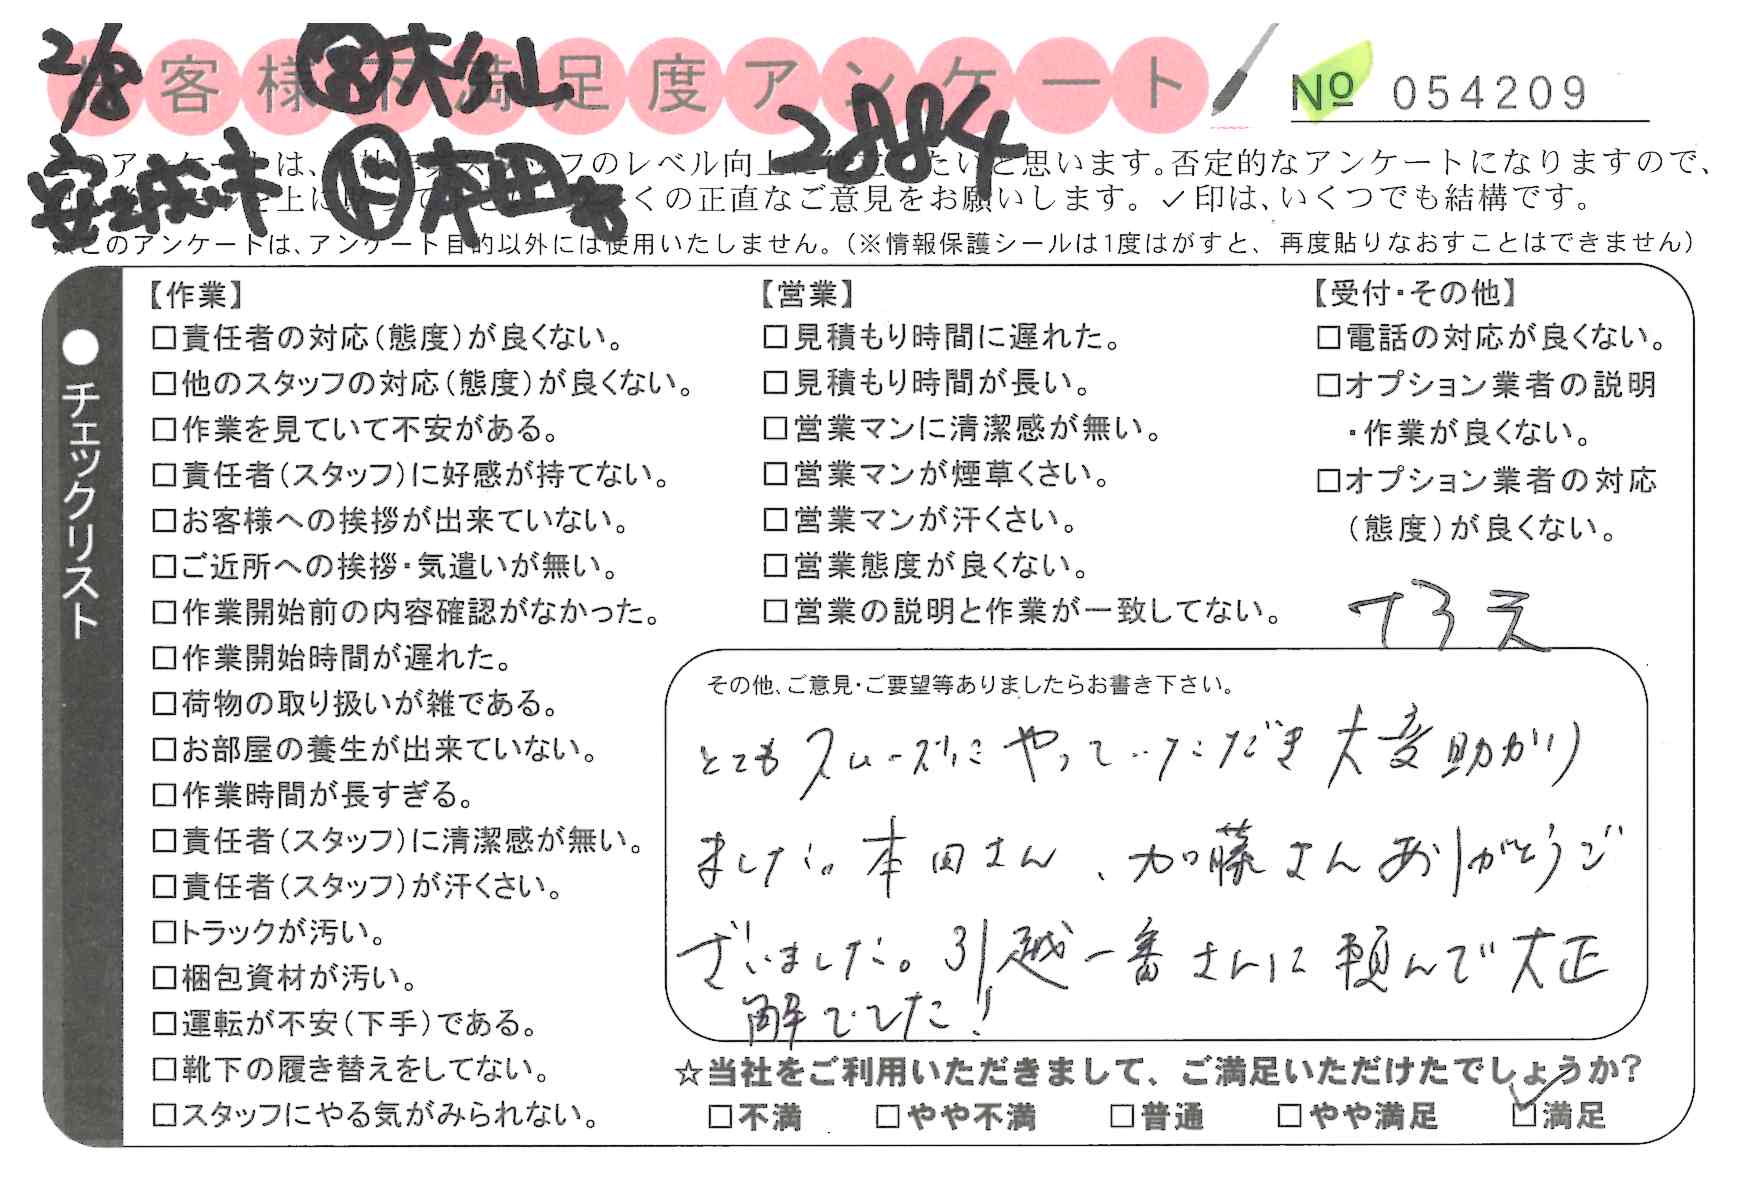 2/8 客様不満足度アンケート № 054209
2884
安城市 本田
このアンケートは、フのレベル向上思います。否定的なアンケートになりますので、
くの正直なご意見をお願いします。✓印は、いくつでも結構です。
※このアンケートは、アンケート目的以外には使用いたしません。(※情報保護シールは1度はがすと、再度貼りなおすことはできません)
●チェックリスト
【作業】
□責任者の対応(態度)が良くない。
□他のスタッフの対応(態度)が良くない。
□作業を見ていて不安がある。
□責任者(スタッフ)に好感が持てない。
□お客様への挨拶が出来ていない。
□ご近所への挨拶・気遣いが無い。
□作業開始前の内容確認がなかった。
□作業開始時間が遅れた。
□荷物の取り扱いが雑である。
□お部屋の養生が出来ていない。
□作業時間が長すぎる。
□責任者(スタッフ)に清潔感が無い。
□責任者(スタッフ)が汗くさい。
□トラックが汚い。
□梱包資材が汚い。
□運転が不安(下手)である。
□靴下の履き替えをしてない。
□スタッフにやる気がみられない。
【営業】
□見積もり時間に遅れた。
□見積もり時間が長い。
□営業マンに清潔感が無い。
□営業マンが煙草くさい。
□営業マンが汗くさい。
□営業態度が良くない。
□営業の説明と作業が一致してない。
【受付・その他】
□電話の対応が良くない。
□オプション業者の説明
・作業が良くない。
□オプション業者の対応
(態度)が良くない。
その他、ご意見・ご要望等ありましたらお書き下さい。
とてもスムーズにやっていただき大変助かり
ました。本田さん、加藤さんありがとうご
ざいました。引越一番さんに頼んで大正
解でした!
☆当社をご利用いただきまして、ご満足いただけたでしょうか?
□不満 □やや不満 □普通 □やや満足 ☑満足